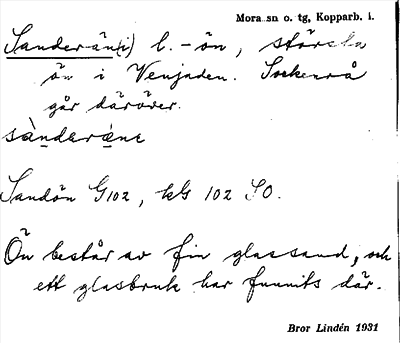 Mora sn o. tg, Kopparb. l.
Sanderän(i) l. -ön, största
ön i Venjaden. Sockenrå
går däröver.
sànderäne
Sandön G102, kG 102 SO.
Ön består av fin glassand, och
ett glasbruk har funnits där.
Bror Lindén 1931